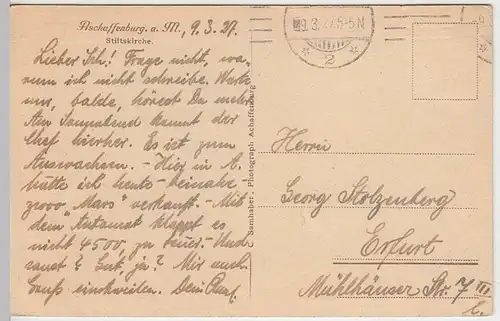 Aschaffenburg. a. M., 9.3.27.
Stiftskirche.
Lieber Sch! Frage nicht, wa-
rum ich nicht schreibe. Warte
nur, balde, hörest Du mehr.
Am Sonnabend kommt der
Chef hierher. Es ist zum
Auswachsen. - Hier in A.
hätte ich heute beinahe
2000 Mars verkauft. - Mit
dem "Automat" klappt es
nicht 4500, zu teuer. - Und
sonst? Gut, ja? Mir auch.
Gruß einstweilen. Dein
Samhaber, Photograph Achaffenburg
9.3.27.5-6N
2
Herrn
Georg Stolzenberg
Erfurt
Mühlhäuser Str. 7 III
l.